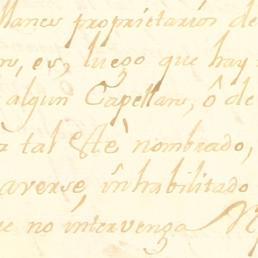 llanes proprietarios de
es, luego que hay
algun Capellan, ô de
tal estè nombrado,
averse inhabilitado
no intervenga